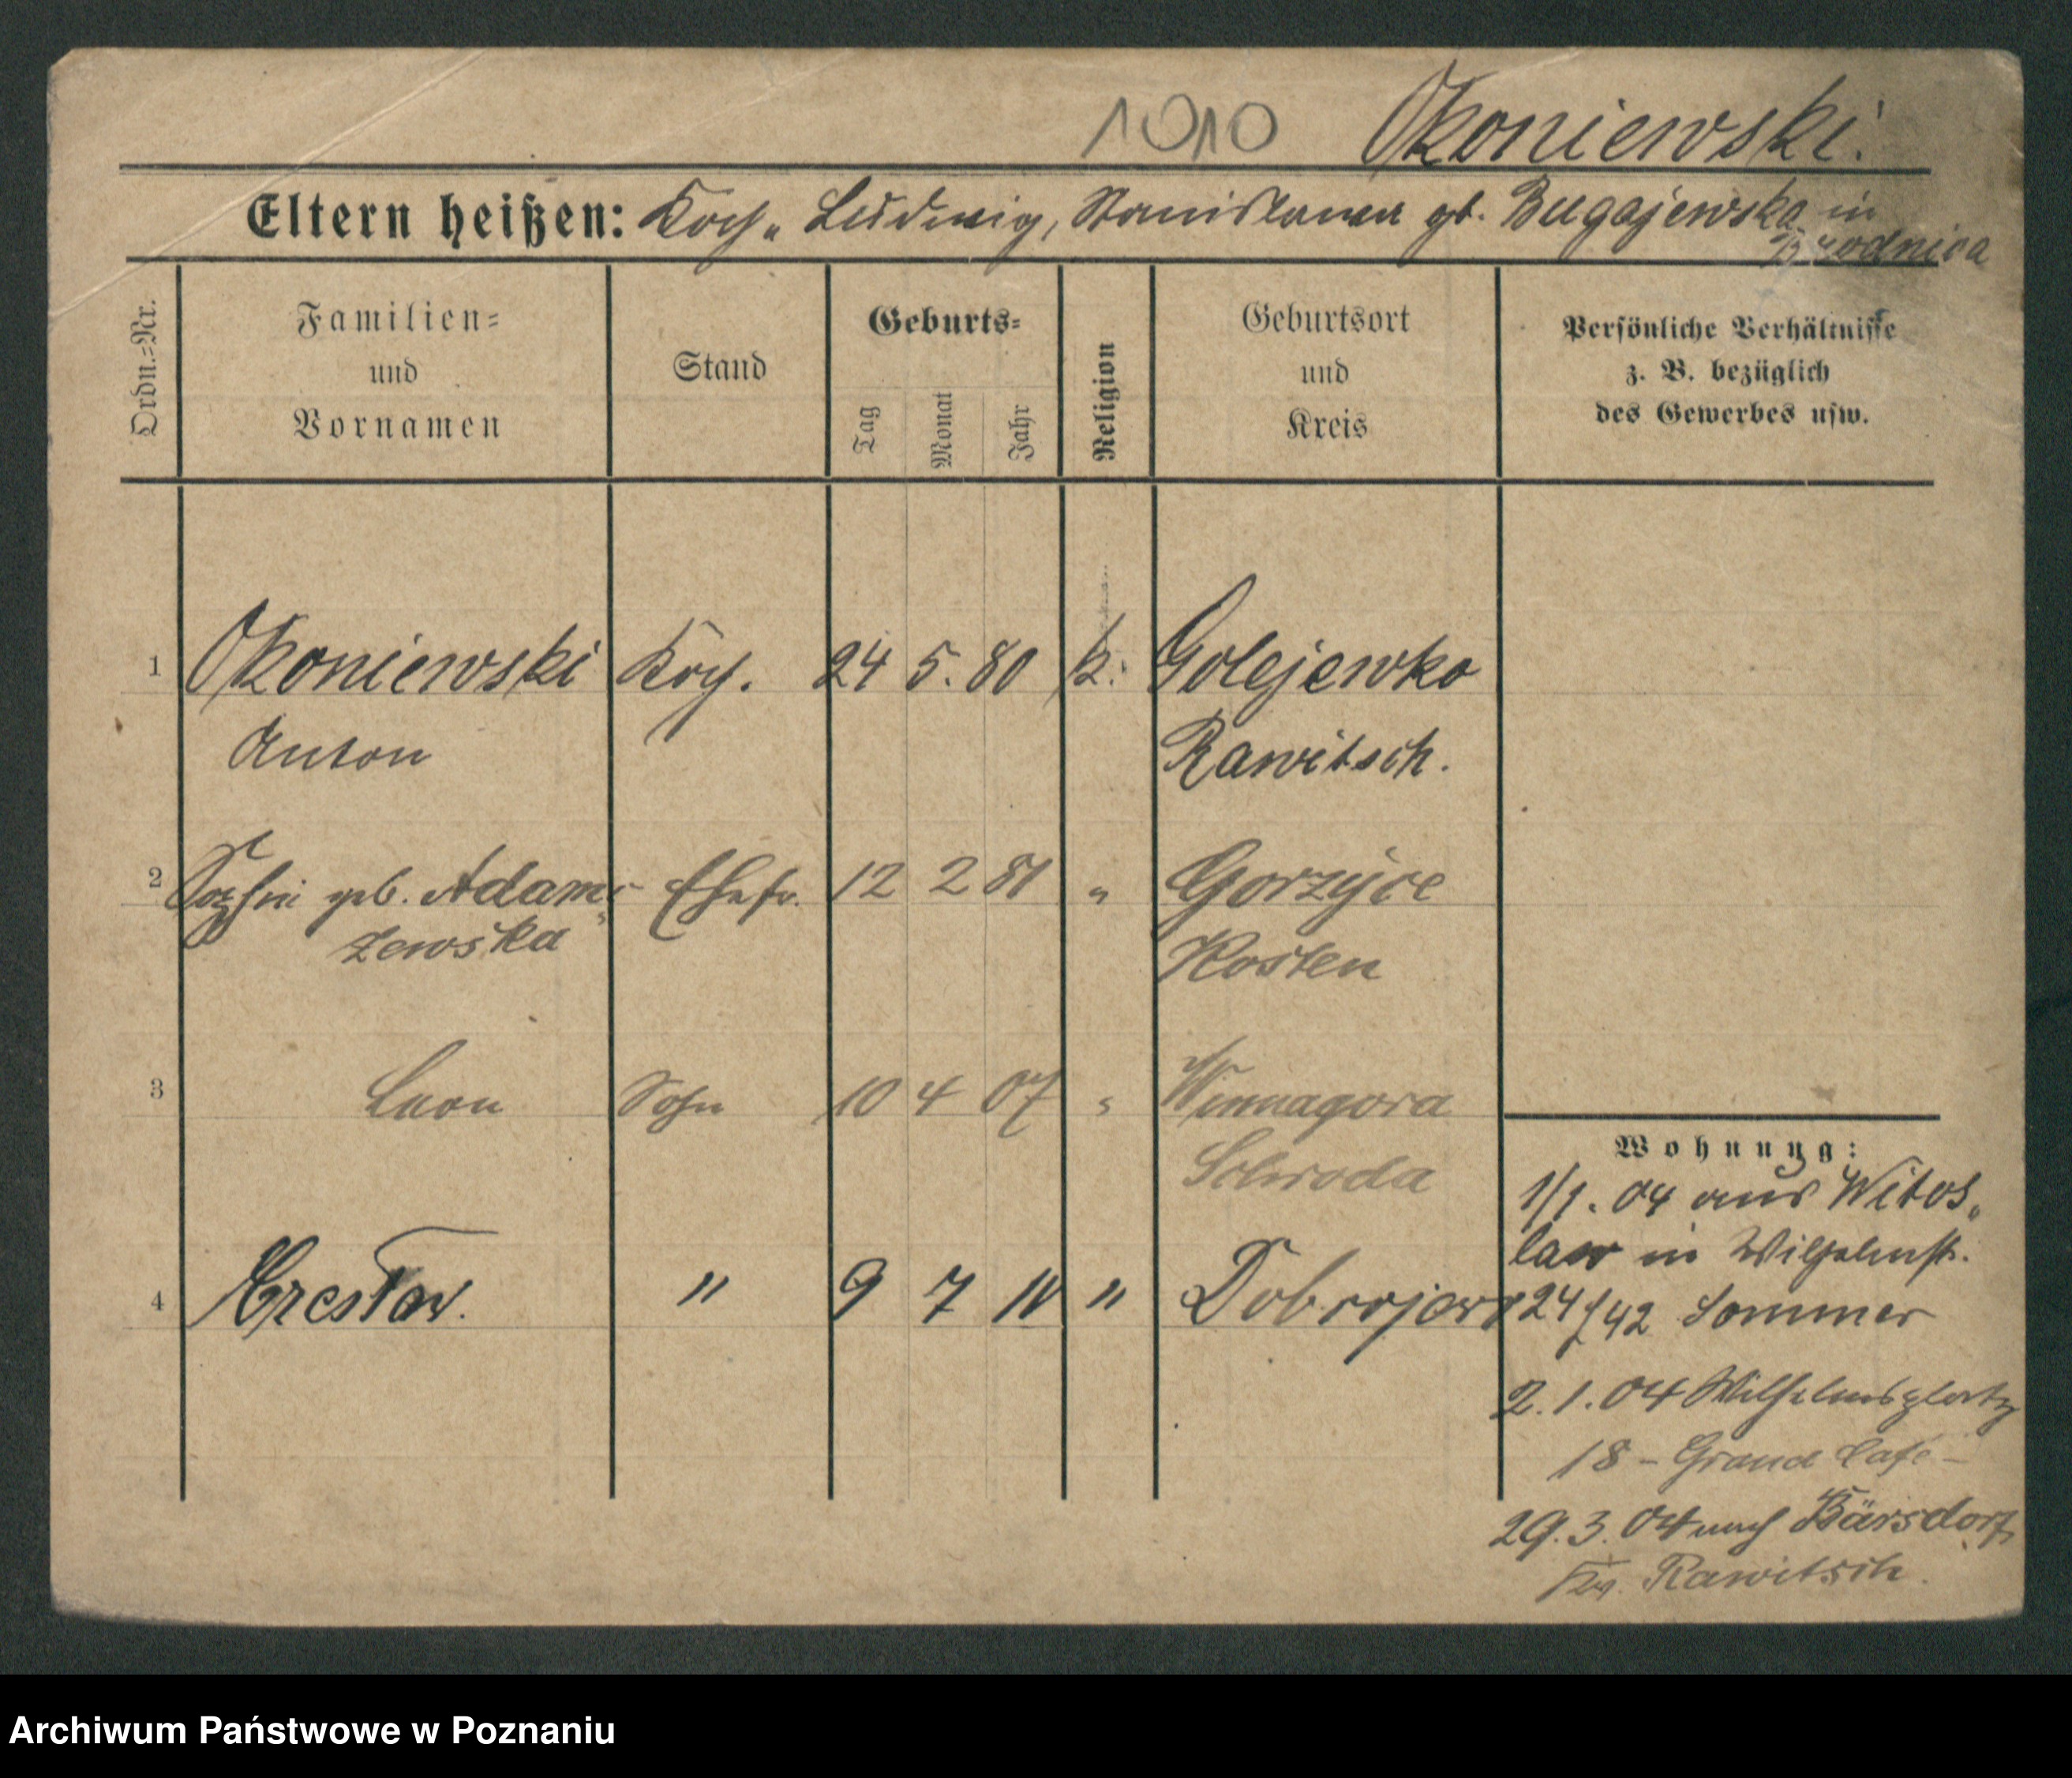 1010 Okoniewski.
Eltern heißen: Koch „ Ludwig, Stanislawa gb. Bugajewska in
Brodnica
Ordn.=Nr.
Familien=
und
Vornamen
Stand
Geburts=
Tag
Monat
Jahr
Religion
Geburtsort
und
Kreis
Persönliche Verhältnisse
z. B. bezüglich
des Gewerbes usw.
1 Okoniewski Koch. 24 5. 80 k. Golejewko
Anton Rawitsch.
2 Sophie geb. Adam= Ehefr. 12 2 81 " Gorzyce
zewska Kosten
3 Leon Sohn 10 4 07 " Winnagora
Schroda
4 " 9 7 " Dobrojewo
Wohnung:
1/1. 04 aus Witos=
law in Wilhelmst.
24/42 Sommer
2.1.04 Wilhelmsplatz
18 - Grand Café -
29.3.04 nach Bärsdorf
Rawitsch.
Archiwum Państwowe w Poznaniu